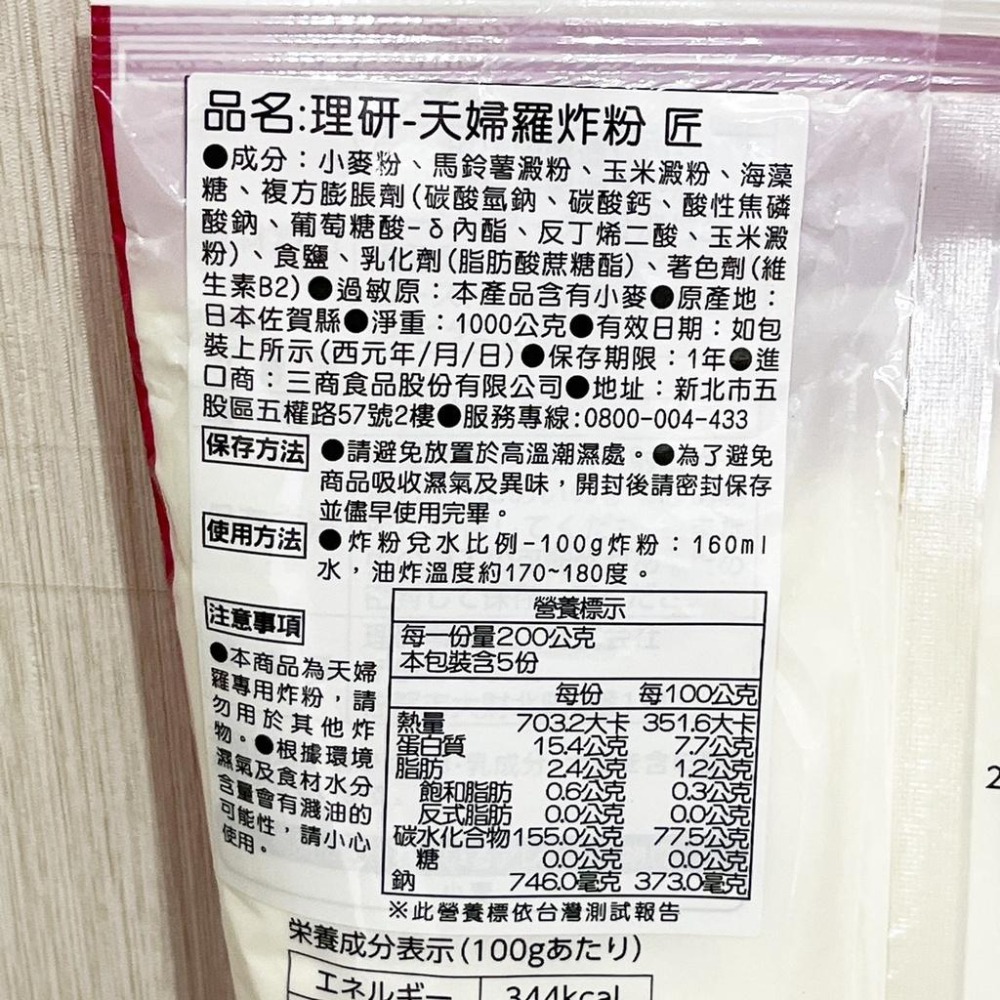 品名:理研-天婦羅炸粉 匠
●成分：小麥粉、馬鈴薯澱粉、玉米澱粉、海藻
糖、複方膨脹劑(碳酸氫鈉、碳酸鈣、酸性焦磷
酸鈉、葡萄糖酸-δ內酯、反丁烯二酸、玉米澱
粉)、食鹽、乳化劑(脂肪酸蔗糖酯)、著色劑(維
生素B2)●過敏原：本產品含有小麥●原產地：
日本佐賀縣●淨重：1000公克●有效日期：如包
裝上所示(西元年/月/日)●保存期限：1年●進
口商：三商食品股份有限公司●地址：新北市五
股區五權路57號2樓●服務專線:0800-004-433
保存方法 ●請避免放置於高溫潮濕處。●為了避免
商品吸收濕氣及異味，開封後請密封保存
並儘早使用完畢。
使用方法 ●炸粉兌水比例-100g炸粉：160ml
水，油炸溫度約170~180度。
注意事項
●本商品為天婦
羅專用炸粉，請
勿用於其他炸
物。●根據環境
濕氣及食材水分
含量會有濺油的
可能性，請小心
使用。
營養標示
每一份量200公克
本包裝含5份
每份 每100公克
熱量 703.2大卡 351.6大卡
蛋白質 15.4公克 7.7公克
脂肪 2.4公克 1.2公克
飽和脂肪 0.6公克 0.3公克
反式脂肪 0.0公克 0.0公克
碳水化合物 155.0公克 77.5公克
糖 0.0公克 0.0公克
鈉 746.0毫克 373.0毫克
※此營養標依台灣測試報告
栄養成分表示(100gあたり)
エネルギー 344kcal
2